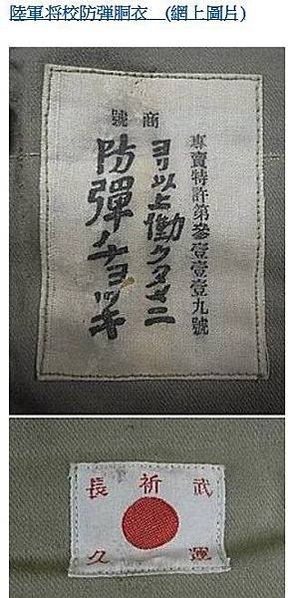 陸軍将校防彈胴衣　(網上圖片)
商號
專賣特許第參壹壹壹九號
ヨリ以上働クタメニ
防彈チョッキ
祈
武運
長久